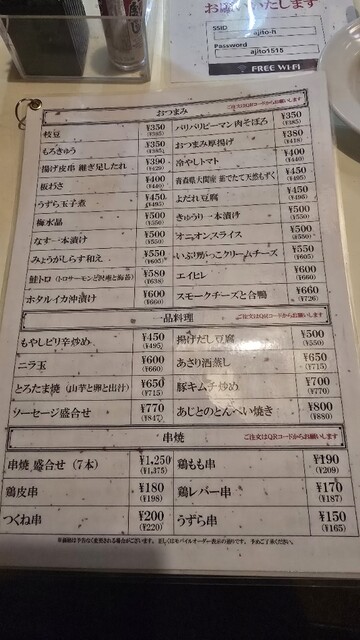 お願いいたします
SSID
ajito-h
Password
ajito1515
FREE Wi-Fi
おつまみ
ご注文はQRコードからお願いします
枝豆 ¥350 (¥385)
もろきゅう ¥350 (¥385)
揚げ皮串 継ぎ足したれ ¥390 (¥429)
板わさ ¥400 (¥440)
うずら玉子煮 ¥450 (¥495)
梅水晶 ¥500 (¥550)
なす一本漬け ¥500 (¥550)
みょうがしらす和え ¥550 (¥605)
鮭トロ (トロサーモンと沢庵と海苔) ¥580 (¥638)
ホタルイカ沖漬け ¥600 (¥660)
パリパリピーマン肉そぼろ ¥350 (¥385)
おつまみ厚揚げ ¥380 (¥418)
冷やしトマト ¥400 (¥440)
青森県大間産 茹でたて天然もずく ¥450 (¥495)
よだれ豆腐 ¥450 (¥495)
きゅうり一本漬け ¥500 (¥550)
オニオンスライス ¥500 (¥550)
いぶりがっこクリームチーズ ¥550 (¥605)
エイヒレ ¥600 (¥660)
スモークチーズと合鴨 ¥660 (¥726)
一品料理
ご注文はQRコードからお願いします
もやしピリ辛炒め ¥450 (¥495)
ニラ玉 ¥600 (¥660)
とろたま焼 (山芋と卵と出汁) ¥650 (¥715)
ソーセージ盛合せ ¥770 (¥847)
揚げだし豆腐 ¥500 (¥550)
あさり酒蒸し ¥650 (¥715)
豚キムチ炒め ¥700 (¥770)
あじとのとんぺい焼き ¥800 (¥880)
串焼
ご注文はQRコードからお願いします
串焼 盛合せ (7本) ¥1,250 (¥1,375)
鶏皮串 ¥180 (¥198)
つくね串 ¥200 (¥220)
鶏もも串 ¥190 (¥209)
鶏レバー串 ¥170 (¥187)
うずら串 ¥150 (¥165)
※価格は予告なく変更される場合がございます。正しくはモバイルオーダー表示の通りです。予めご了承ください。